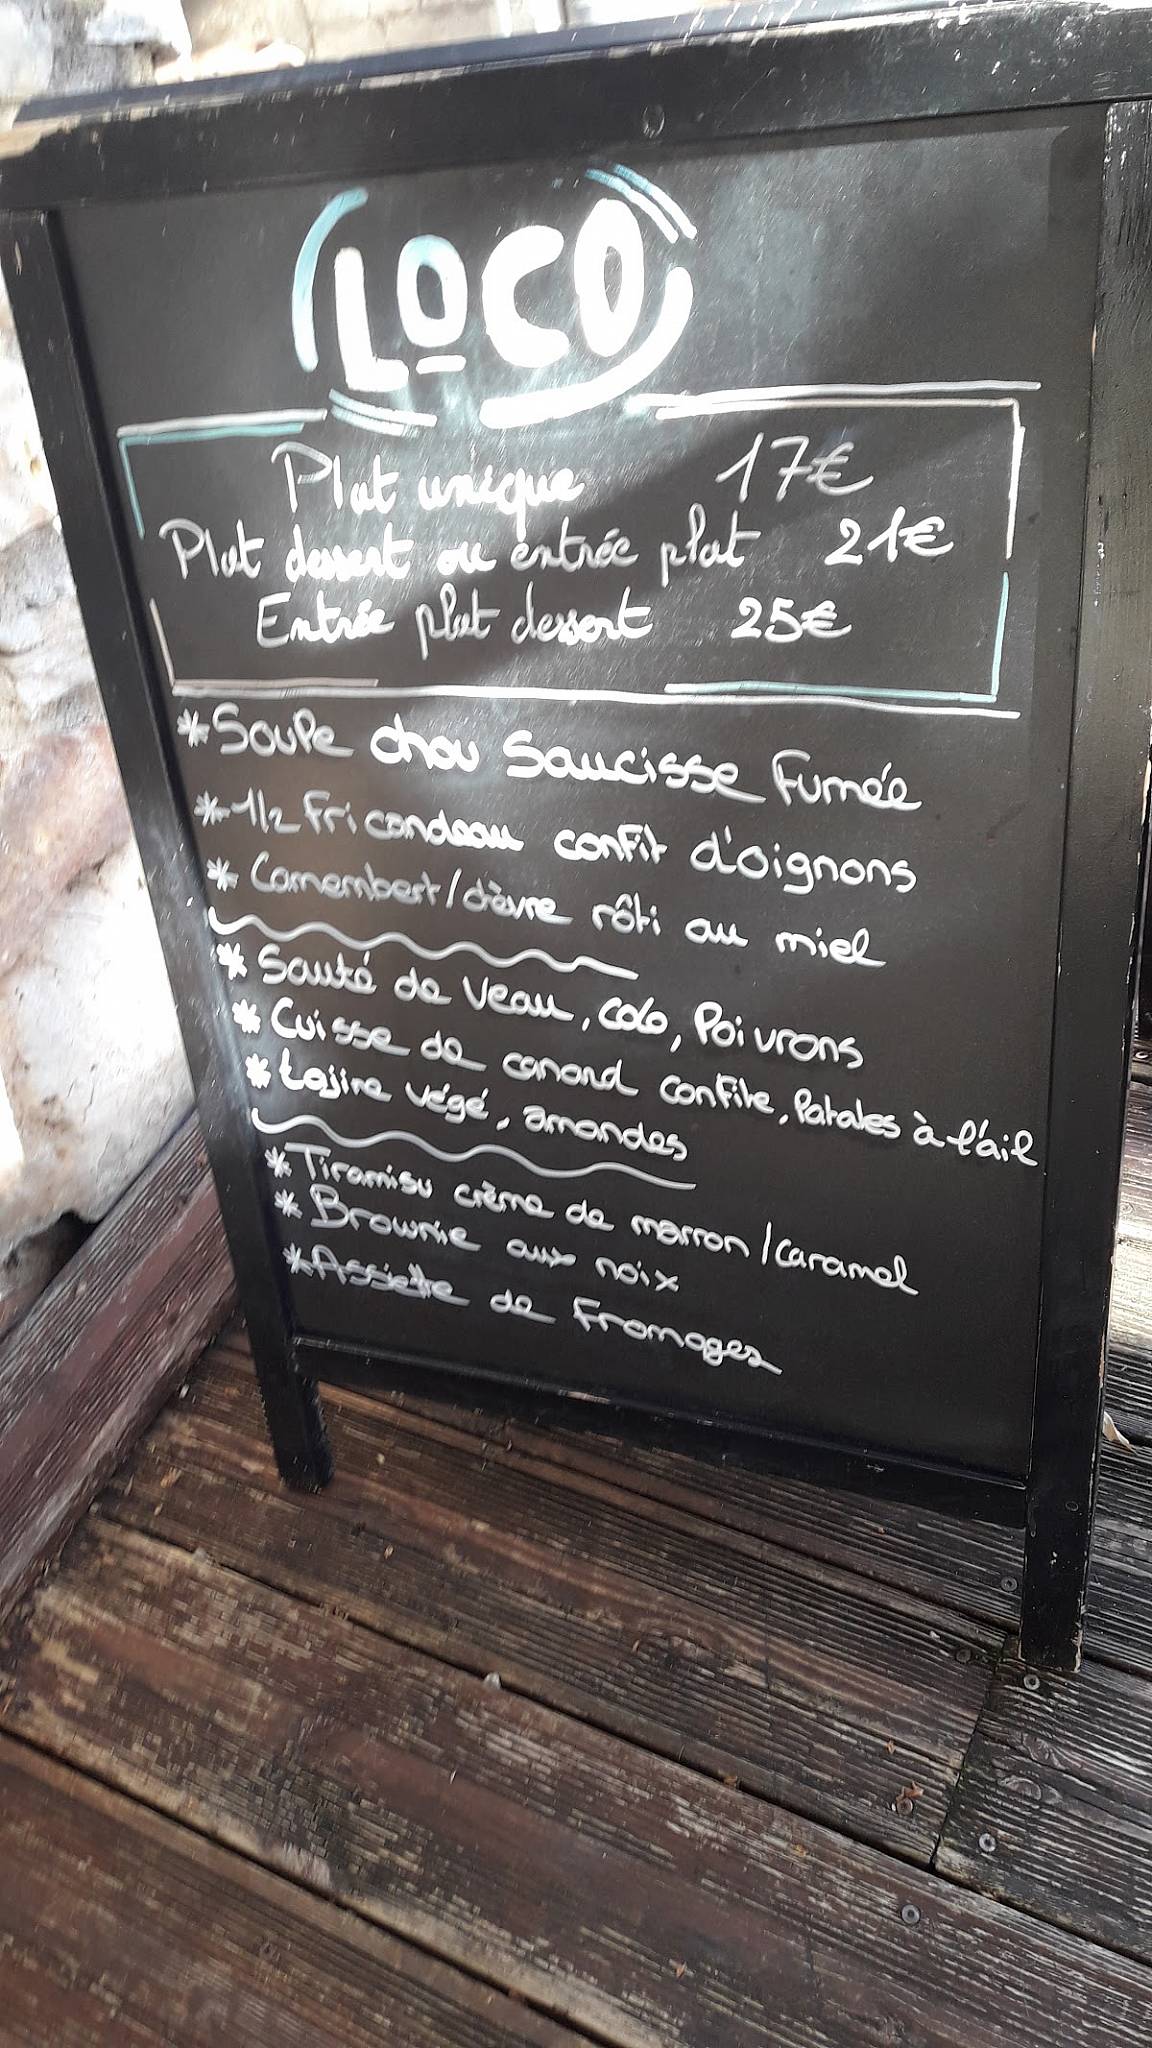 LOCO
Plat unique 17€
Plat dessert ou entrée plat 21€
Entrée plat dessert 25€
*Soupe chou Saucisse Fumée
*1/2 Fricandeau confit d'oignons
*Camembert/chèvre rôti au miel
*Sauté de Veau, coco, Poivrons
*Cuisse de canard confite, Patates à l'ail
*tajine végé, amandes
*Tiramisu crème de marron/caramel
*Brownie aux noix
*Assiette de Fromages